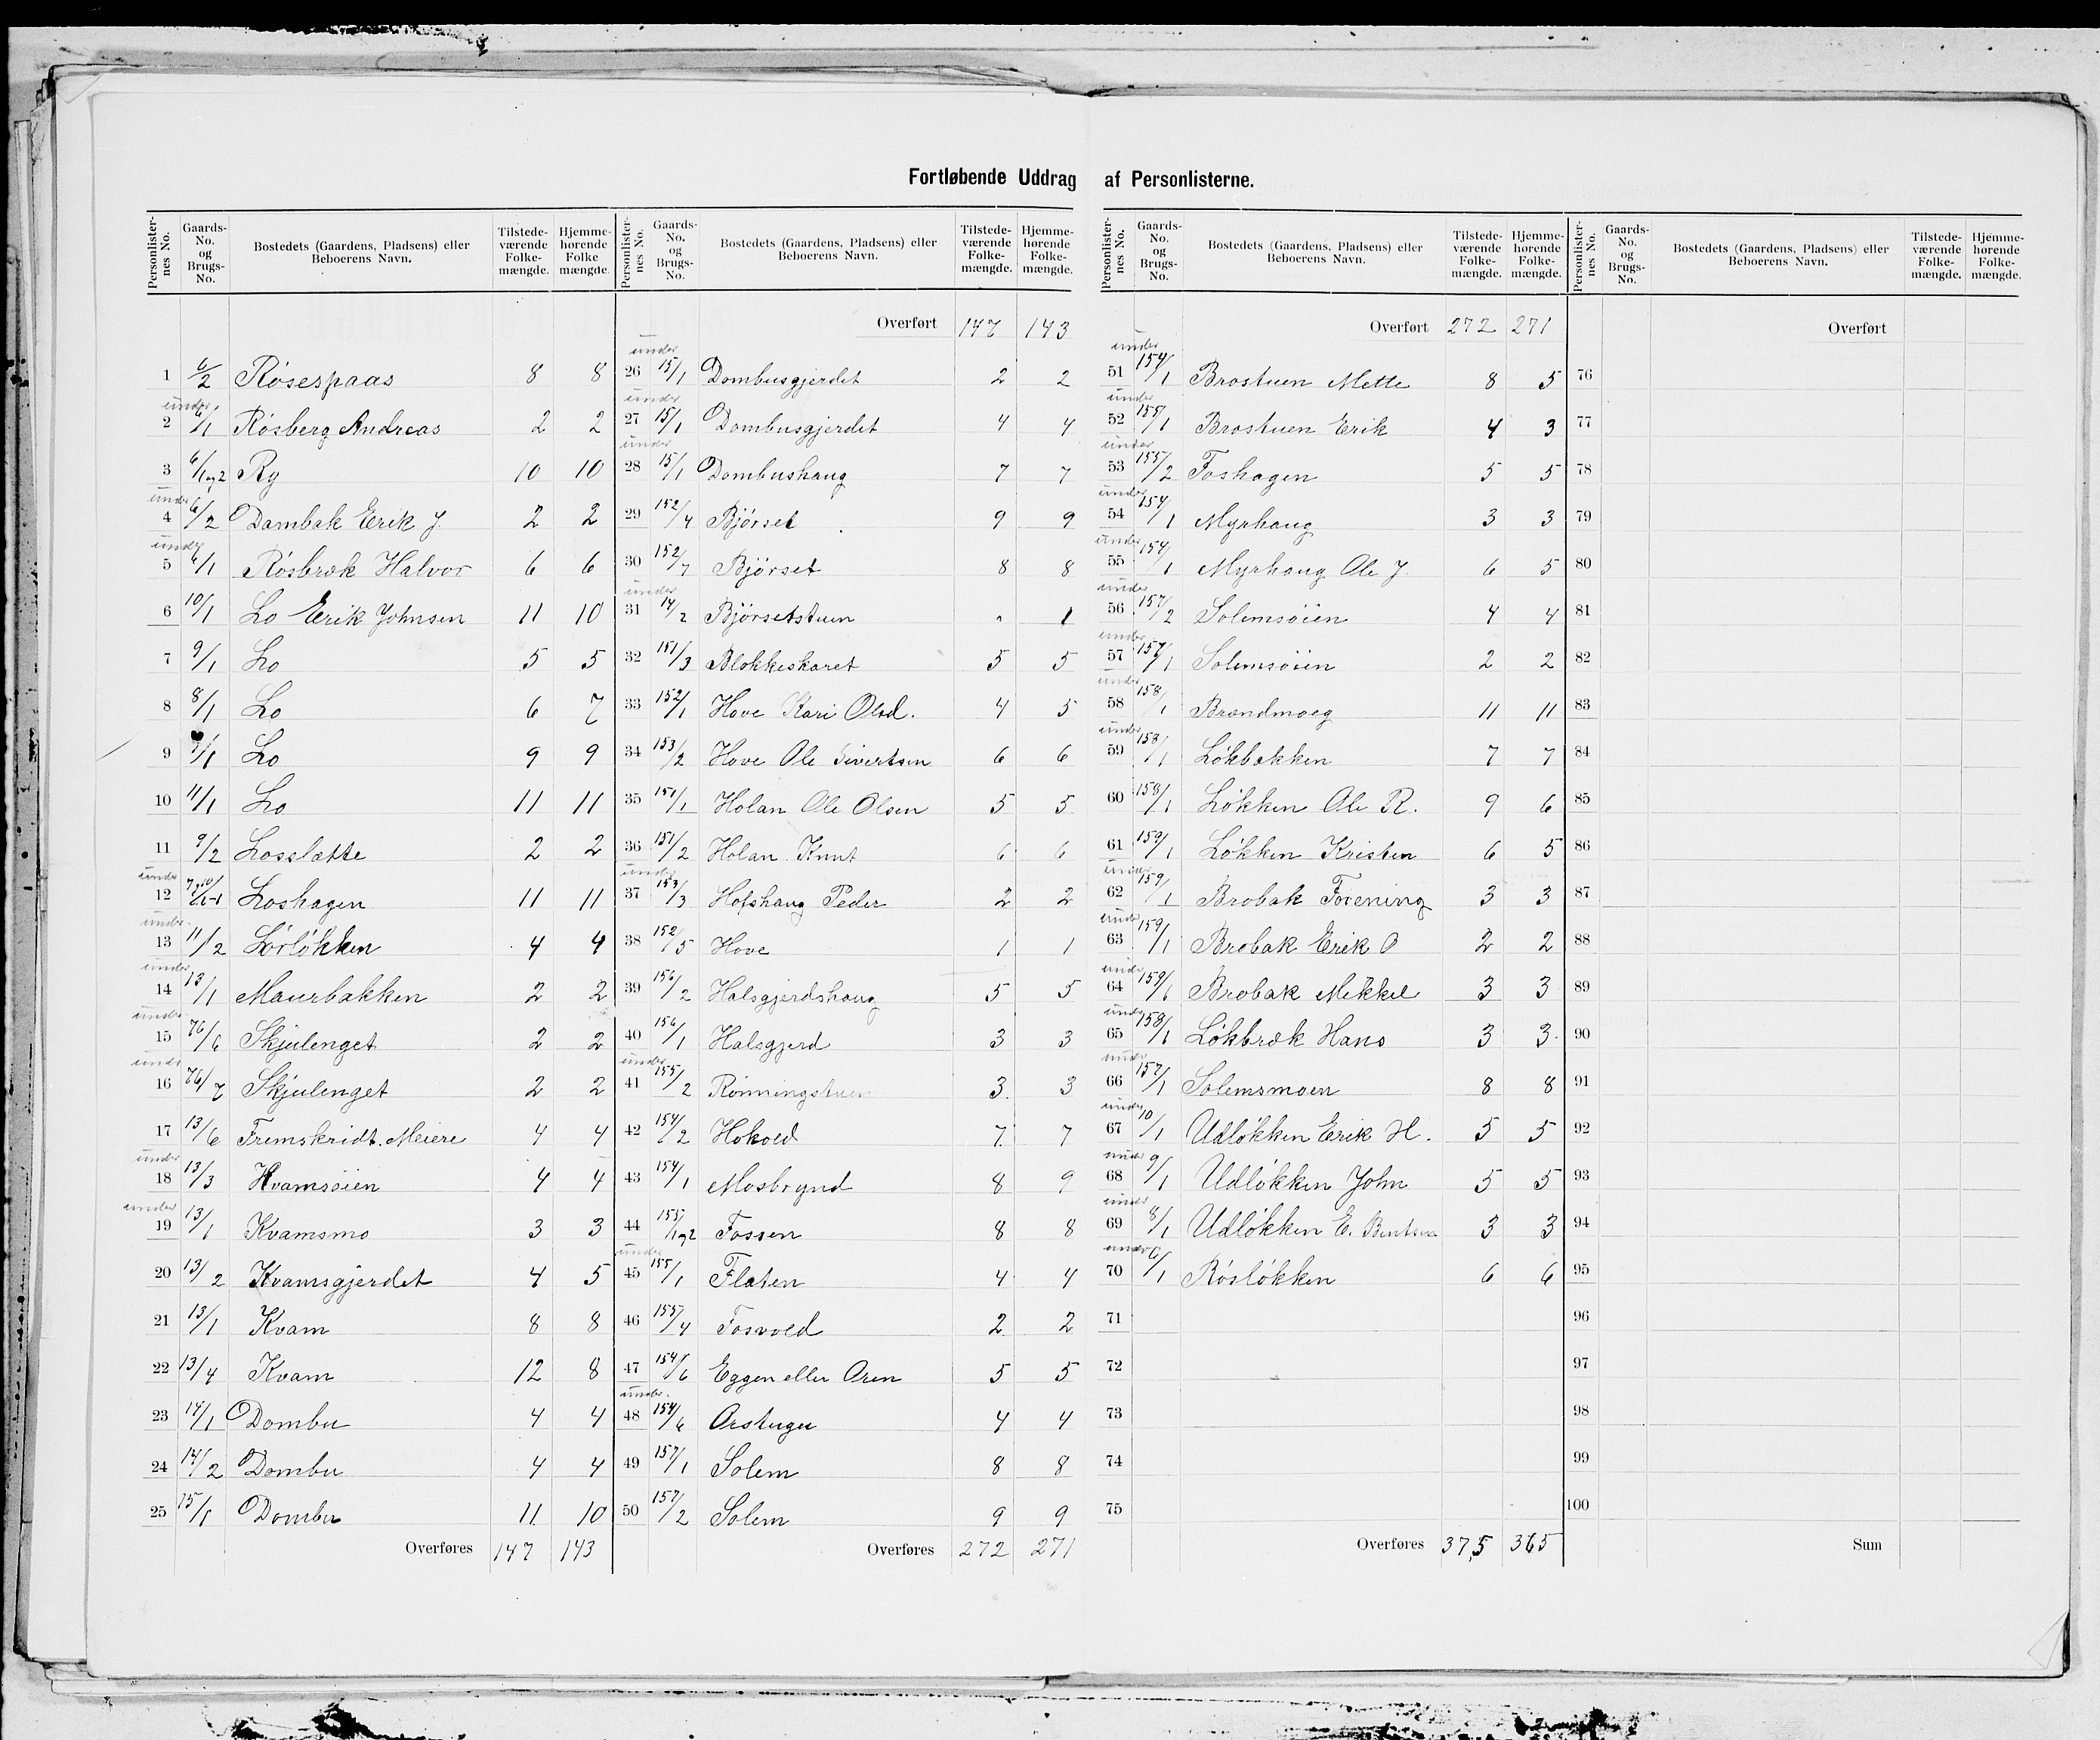 Fortløbende Uddrag af Personlisterne.
Personlister-nes No. Gaards-No. og Brugs-No. Bostedets (Gaardens, Pladsens) eller Beboerens Navn. Tilstede-værende Folke-mængde. Hjemme-hørende Folke mængde.
1 6/2 Røsespaas 8 8
under
2 6/1 Røsberg Andreas 2 2
3 6/1og2 Ry 10 10
under
4 6/2 Dambak Erik J 2 2
under
5 6/1 Røsbræk Halvor 6 6
6 10/1 Lo Erik Johnsen 11 10
7 9/1 Lo 5 5
8 8/1 Lo 6 7
9 7/1 Lo 9 9
10 11/1 Lo 11 11
11 9/2 Losslætte 2 2
under
12 Loshagen 11 11
under
13 11/2 Lørløkken 4 4
under
14 13/1 Maurbakken 2 2
under
15 76/6 Skjulenget 2 2
under
16 76/7 Skjulenget 2 2
17 13/6 Fremskridt. Meiere 4 4
under
18 13/3 Kvamsøien 4 4
under
19 13/1 Kvamsmo 3 3
20 13/2 Kvamsgjerdet 4 5
21 13/1 Kvam 8 8
22 13/4 Kvam 12 8
23 14/1 Dombu 4 4
24 14/2 Dombu 4 4
25 15/1 Dombu 11 10
Overføres 147 143
Personlister-nes No. Gaards-No. og Brugs-No. Bostedets (Gaardens, Pladsens) eller Beboerens Navn. Tilstede-værende Folke-mængde. Hjemme-hørende Folke-mængde.
Overført 147 143
under
26 15/1 Dombusgjerdet 2 2
under
27 15/1 Dombusgjerdet 4 4
under
28 15/1 Dombushaug 7 7
29 152/4 Bjørset 9 9
30 152/7 Bjørset 8 8
under
31 14/2 Bjørsetstuen " 1
32 151/3 Blokkeskaret 5 5
33 152/1 Hove Kari Olsd. 4 5
34 153/2 Hove Ole Sivertsen 6 6
35 151/1 Holan Ole Olsen 5 5
36 151/2 Holan Knut 6 6
under
37 153/3 Hofshaug Peder 2 2
38 152/5 Hove 1 1
39 156/2 Halsgjerdshaug 5 5
40 156/1 Halsgjerd 3 3
under
41 155/2 Rønningstuen 3 3
42 154/2 Hokold 7 7
43 154/1 Mosbrynd 8 9
44 155/1og2 Fossen 8 8
under
45 155/1 Flaten 4 4
46 155/4 Fosvold 2 2
47 154/6 Eggen eller Øren 5 5
under.
48 154/6 Ørstugu 4 4
49 157/1 Solem 8 8
50 157/2 Solem 9 9
Overføres 272 271
Personlister-nes No. Gaards-No. og Brugs-No. Bostedets (Gaardens, Pladsens) eller Beboerens Navn. Tilstede-værende Folke-mængde. Hjemme-hørende Folke-mængde.
Overført 272 271
under
51 154/1 Brostuen Mette 8 5
under
52 155/1 Brostuen Erik 4 3
under
53 155/2 Foshagen 5 5
under
54 154/1 Myrhaug 3 3
under
55 154/1 Myrhaug Ole J. 6 5
under
56 157/2 Solemsøien 4 4
under
57 157/1 Solemsøien 2 2
under
58 158/1 Brandmoeg 11 11
under
59 158/1 Løkbakken 7 7
60 158/1 Løkken Ole R. 9 6
61 159/1 Løkken Kristen 6 5
under
62 159/1 Brobak Forening 3 3
under
63 159/1 Brobak Erik O 2 2
under
64 159/1 Brobak Mikkel 3 3
under
65 158/1 Løkbræk Hans 3 3
under
66 157/1 Solemsmoen 8 8
under
67 10/1 Udløkken Erik H. 5 5
under
68 9/1 Udløkken John 5 5
under
69 8/1 Udløkken E. Bentsen 3 3
under
70 6/1 Røsløkken 6 6
71
72
73
74
75
Overføres 375 365
Personlister-nes No. Gaards-No. og Brugs-No. Bostedets (Gaardens, Pladsens) eller Beboerens Navn. Tilstede-værende Folke-mængde. Hjemme-hørende Folke-mængde.
Overført
76
77
78
79
80
81
82
83
84
85
86
87
88
89
90
91
92
93
94
95
96
97
98
99
100
Sum